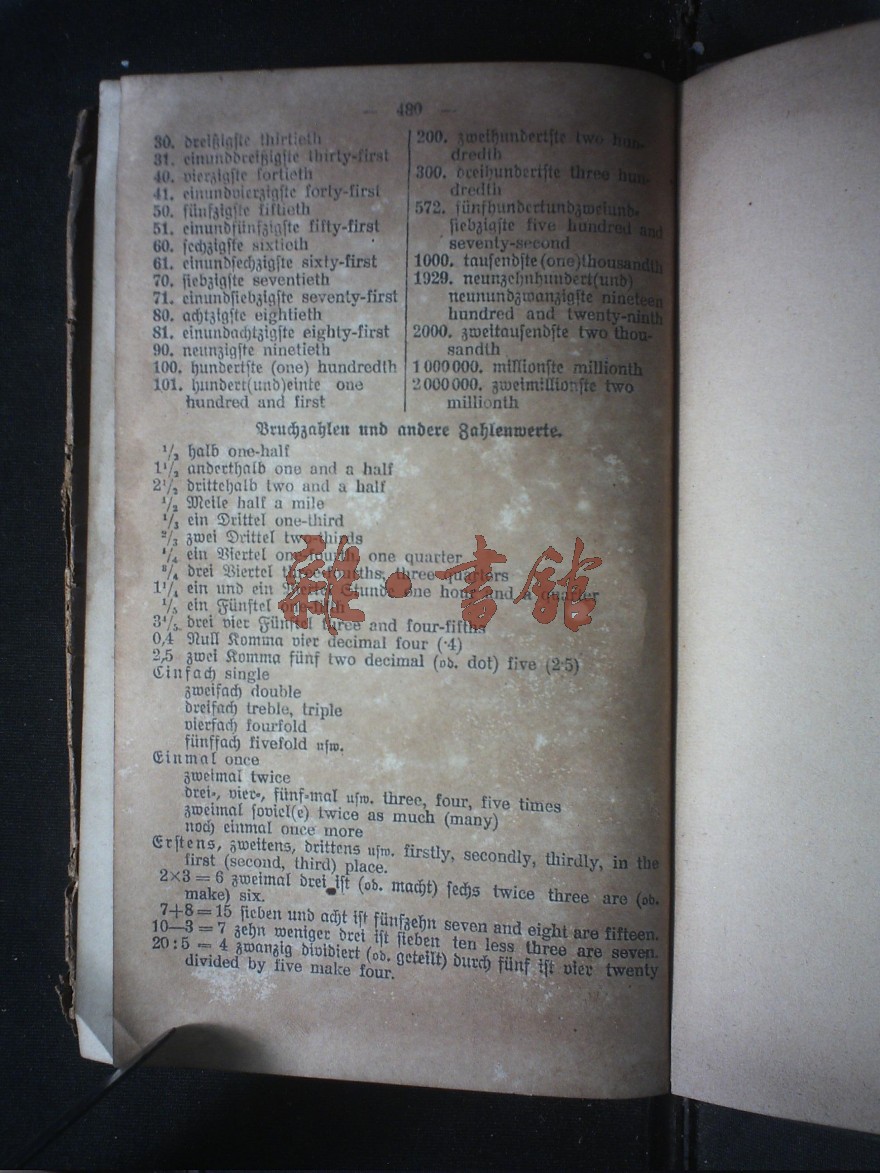 — 480 —
30. dreißigste thirtieth
31. einunddreißigste thirty-first
40. vierzigste fortieth
41. einundvierzigste forty-first
50. fünfzigste fiftieth
51. einundfünfzigste fifty-first
60. sechzigste sixtieth
61. einundsechzigste sixty-first
70. siebzigste seventieth
71. einundsiebzigste seventy-first
80. achtzigste eightieth
81. einundachtzigste eighty-first
90. neunzigste ninetieth
100. hundertste (one) hundredth
101. hundert(und)einte one
hundred and first
200. zweihundertste two hun-
dredth
300. dreihundertste three hun-
dredth
572. fünfhundertundzweiund-
siebzigste five hundred and
seventy-second
1000. tausendste (one)thousandth
1929. neunzehnhundert(und)
neunundzwanzigste nineteen
hundred and twenty-ninth
2000. zweitausendste two thou-
sandth
1 000 000. millionste millionth
2 000 000. zweimillionste two
millionth
Bruchzahlen und andere Zahlenwerte.
1/2 halb one-half
1 1/2 anderthalb one and a half
2 1/2 drittehalb two and a half
1/2 Meile half a mile
1/3 ein Drittel one-third
2/3 zwei Drittel two-thirds
1/4 ein Viertel one-fourth, one quarter
3/4 drei Viertel three-fourths, three quarters
1 1/4 ein und ein Viertel Stunde one hour and a quarter
1/5 ein Fünftel one-fifth
3 4/5 drei vier Fünftel three and four-fifths
0,4 Null Komma vier decimal four (·4)
2,5 zwei Komma fünf two decimal (od. dot) five (2·5)
Einfach single
zweifach double
dreifach treble, triple
vierfach fourfold
fünffach fivefold usw.
Einmal once
zweimal twice
drei-, vier-, fünf-mal usw. three, four, five times
zweimal soviel(e) twice as much (many)
noch einmal once more
Erstens, zweitens, drittens usw. firstly, secondly, thirdly, in the
first (second, third) place.
2×3 = 6 zweimal drei ist (od. macht) sechs twice three are (od.
make) six.
7+8 = 15 sieben und acht ist fünfzehn seven and eight are fifteen.
10—3 = 7 zehn weniger drei ist sieben ten less three are seven.
20 : 5 = 4 zwanzig dividiert (od. geteilt) durch fünf ist vier twenty
divided by five make four.
雜·書館